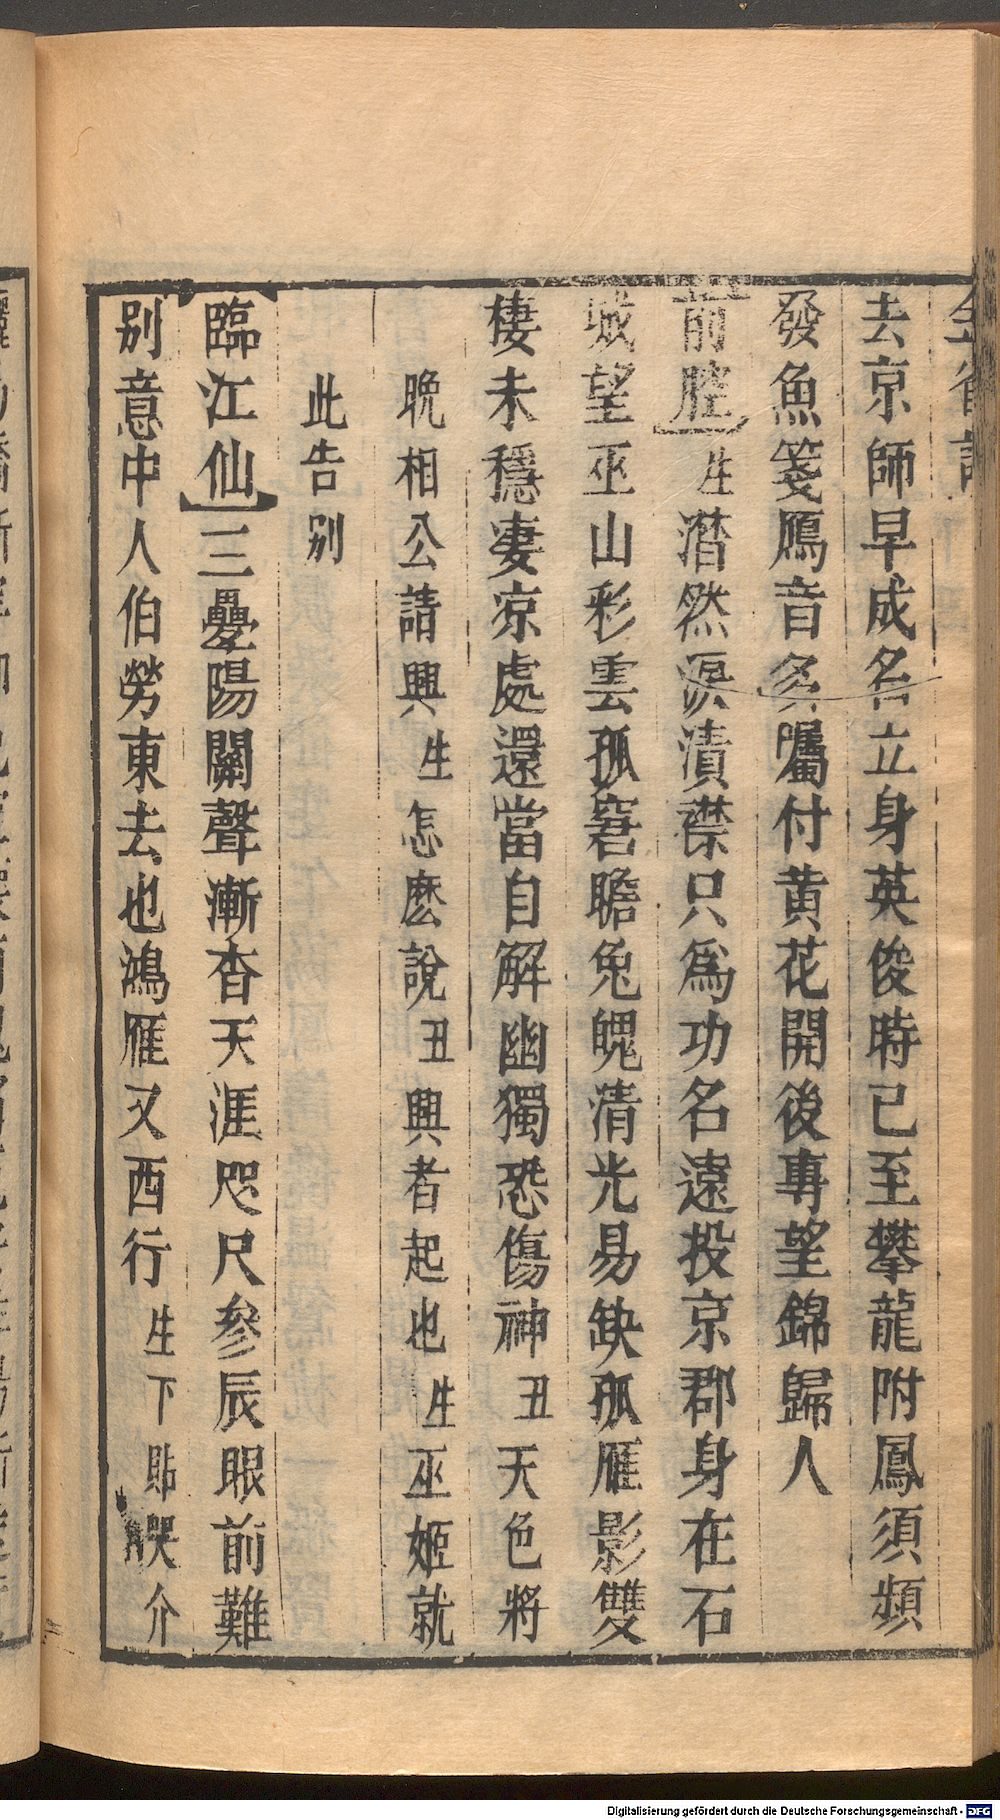 去京師早成名立身英俊時已至攀龍附鳳須頻
發魚箋鴈音多囑付黄花開後專望錦歸人
前腔 生潸然淚漬襟只爲功名遠投京郡身在石
城望巫山彩雲孤窘瞻兔魄清光易缺孤雁影雙
棲未穩凄凉處還當自解幽獨恐傷神丑天色將
晩相公請興生怎麽說丑興者起也生巫姬就
此告别
臨江仙 三疊陽關聲漸杳天涯咫尺參辰眼前難
别意中人伯勞東去也鴻雁又西行生下貼哭介
Digitalisierung gefördert durch die Deutsche Forschungsgemeinschaft - DFG